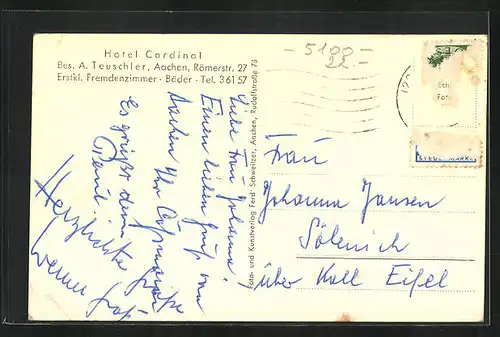 Hotel Cardinal
Bes. A. Teuschler, Aachen, Römerstr. 27
Erstkl. Fremdenzimmer · Bäder · Tel. 3 61 57
- 5100 -
22.-
Liebe Frau Johanna!
Einen lieben Gruß von
Aachen Ihr
Es grüßt dem
Paul.
Herzlichste
Werner
Foto- und Kunstverlag Ferd. Schweitzer, Aachen, Rudolfstraße 73
Ech
Foto
STEUERMARKE
Frau
Johanna Jansen
Sötenich
über Kall Eifel